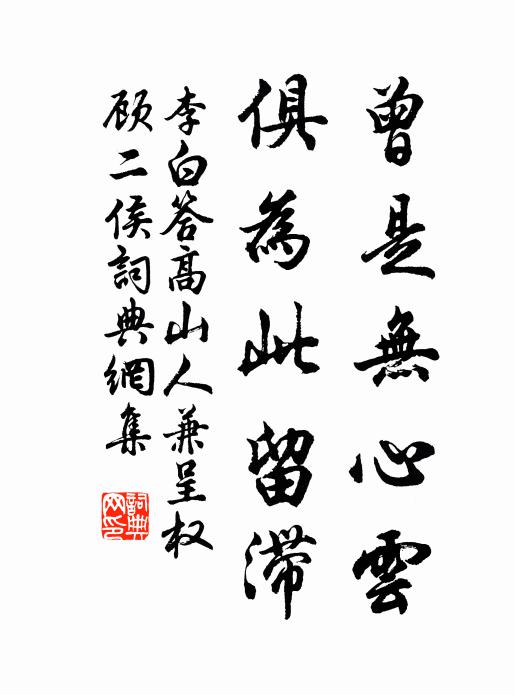 曾是無心雲
俱為此留滯
李白答高山人兼呈权
顾二侯詞典網集
詞典網印